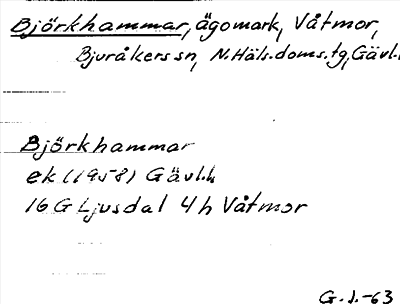 Björkhammar, ägomark, Våtmor,
Bjuråkers sn, N.Häls.doms.tg, Gävl.l
Björkhammar
ek (1958) Gävl.l.
16 G Ljusdal 4 h Våtmor
G.J.-63